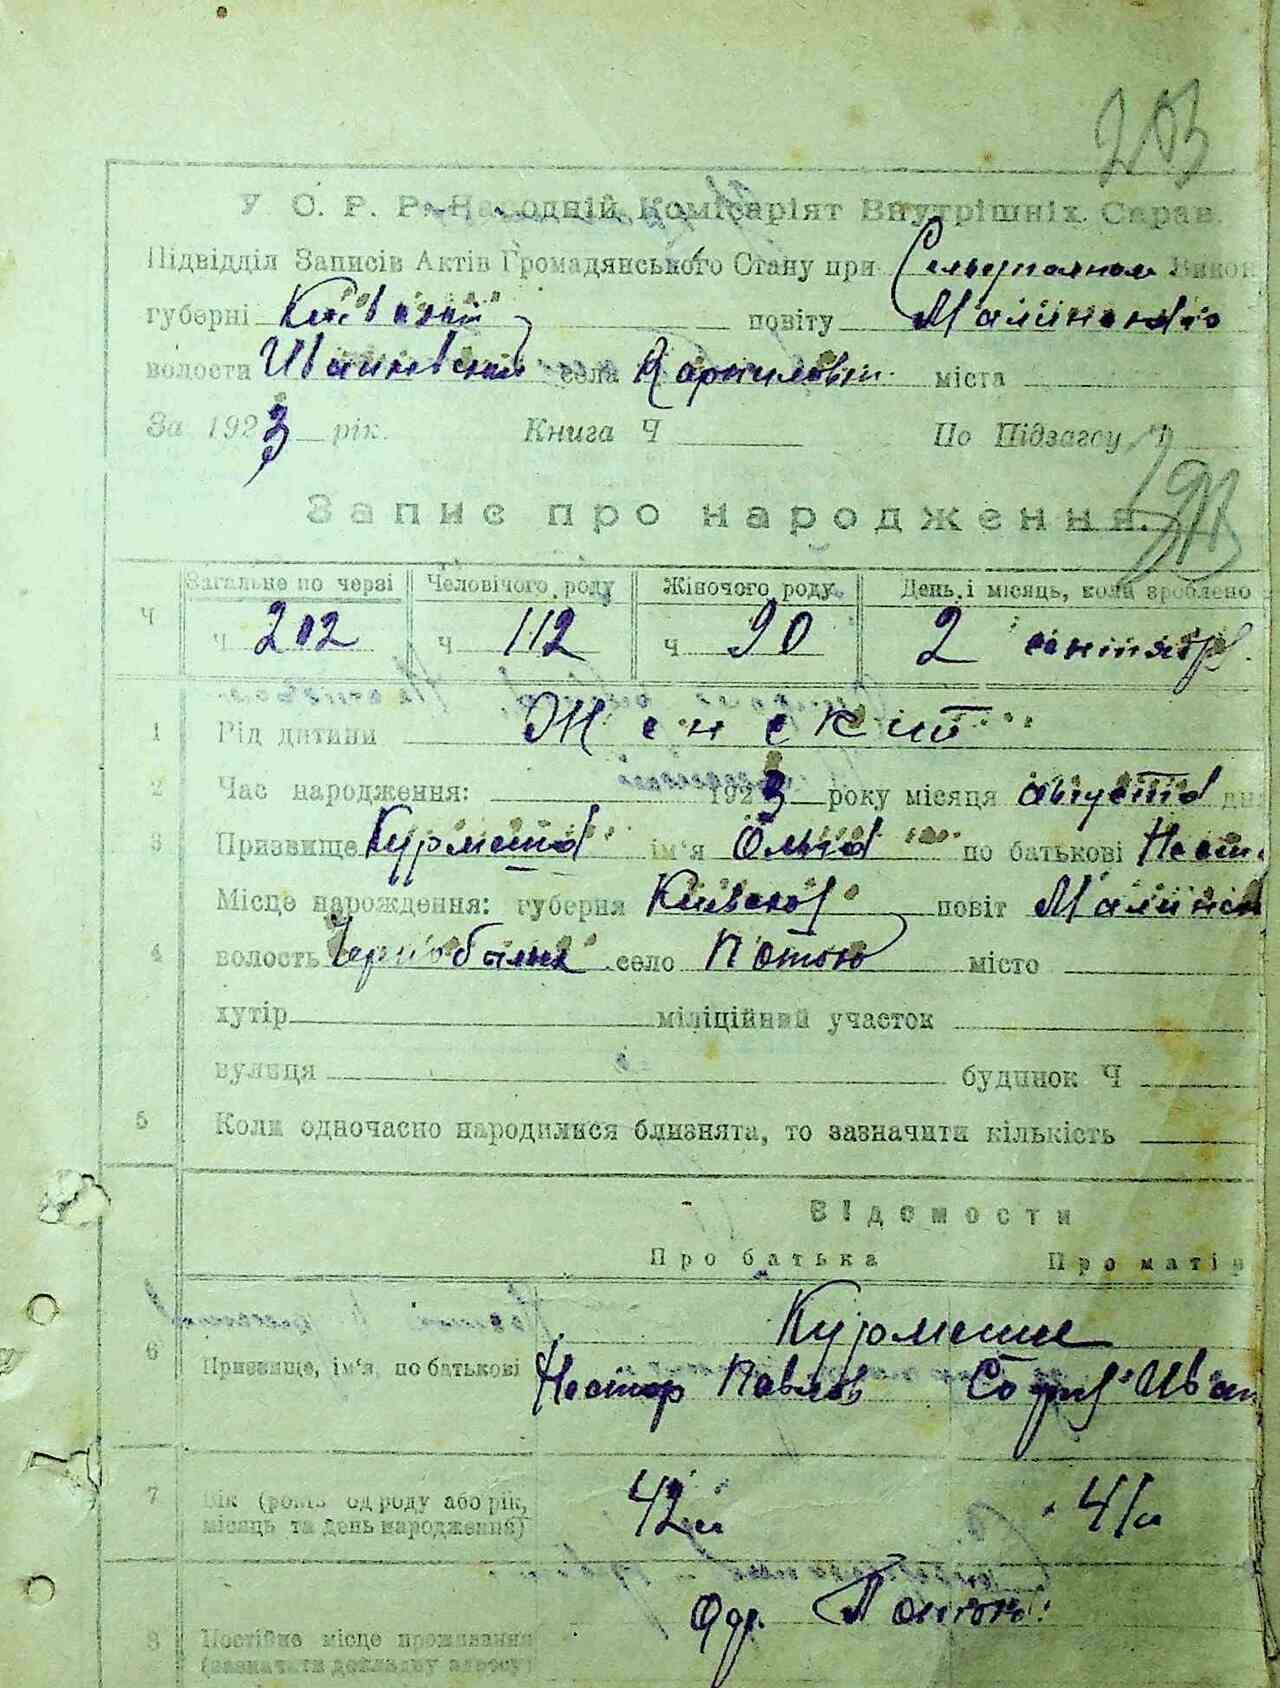 203
У С. Р. Р. Народній Комісаріят Внутрішніх Справ.
Підвідділ Записів Актів Громадянського Стану при Викон
губерні Київский повіту Малинского
волости Иванковский села міста
За 1923 рік. Книга Ч По Підзагсу Ч
Запис про народження.
Загальне по черзі Человічого роду Жіночого роду День і місяць, коли зроблено
Ч ч 202 ч 112 ч 90 2 сентября
1 Рід дитини Женский
2 Час народження: 1923 року місяця августа дня
3 Призвище Курмета імʼя Ольга по батькові Нест
Місце нарождення: губерня Киевская повіт Малинск
4 волость село місто
хутір міліційний участок
вулиця будинок Ч
5 Коли одночасно народилися близнята, то зазначити кількість
Відомости
Про батька Про матір
6 Призвище, імʼя, по батькові
Нестор Павлов София Иван
7 Вік (років од роду або рік, 42 41
місяць та день народження)
8 Постійне місце проживання
(зазначити докладну адресу)